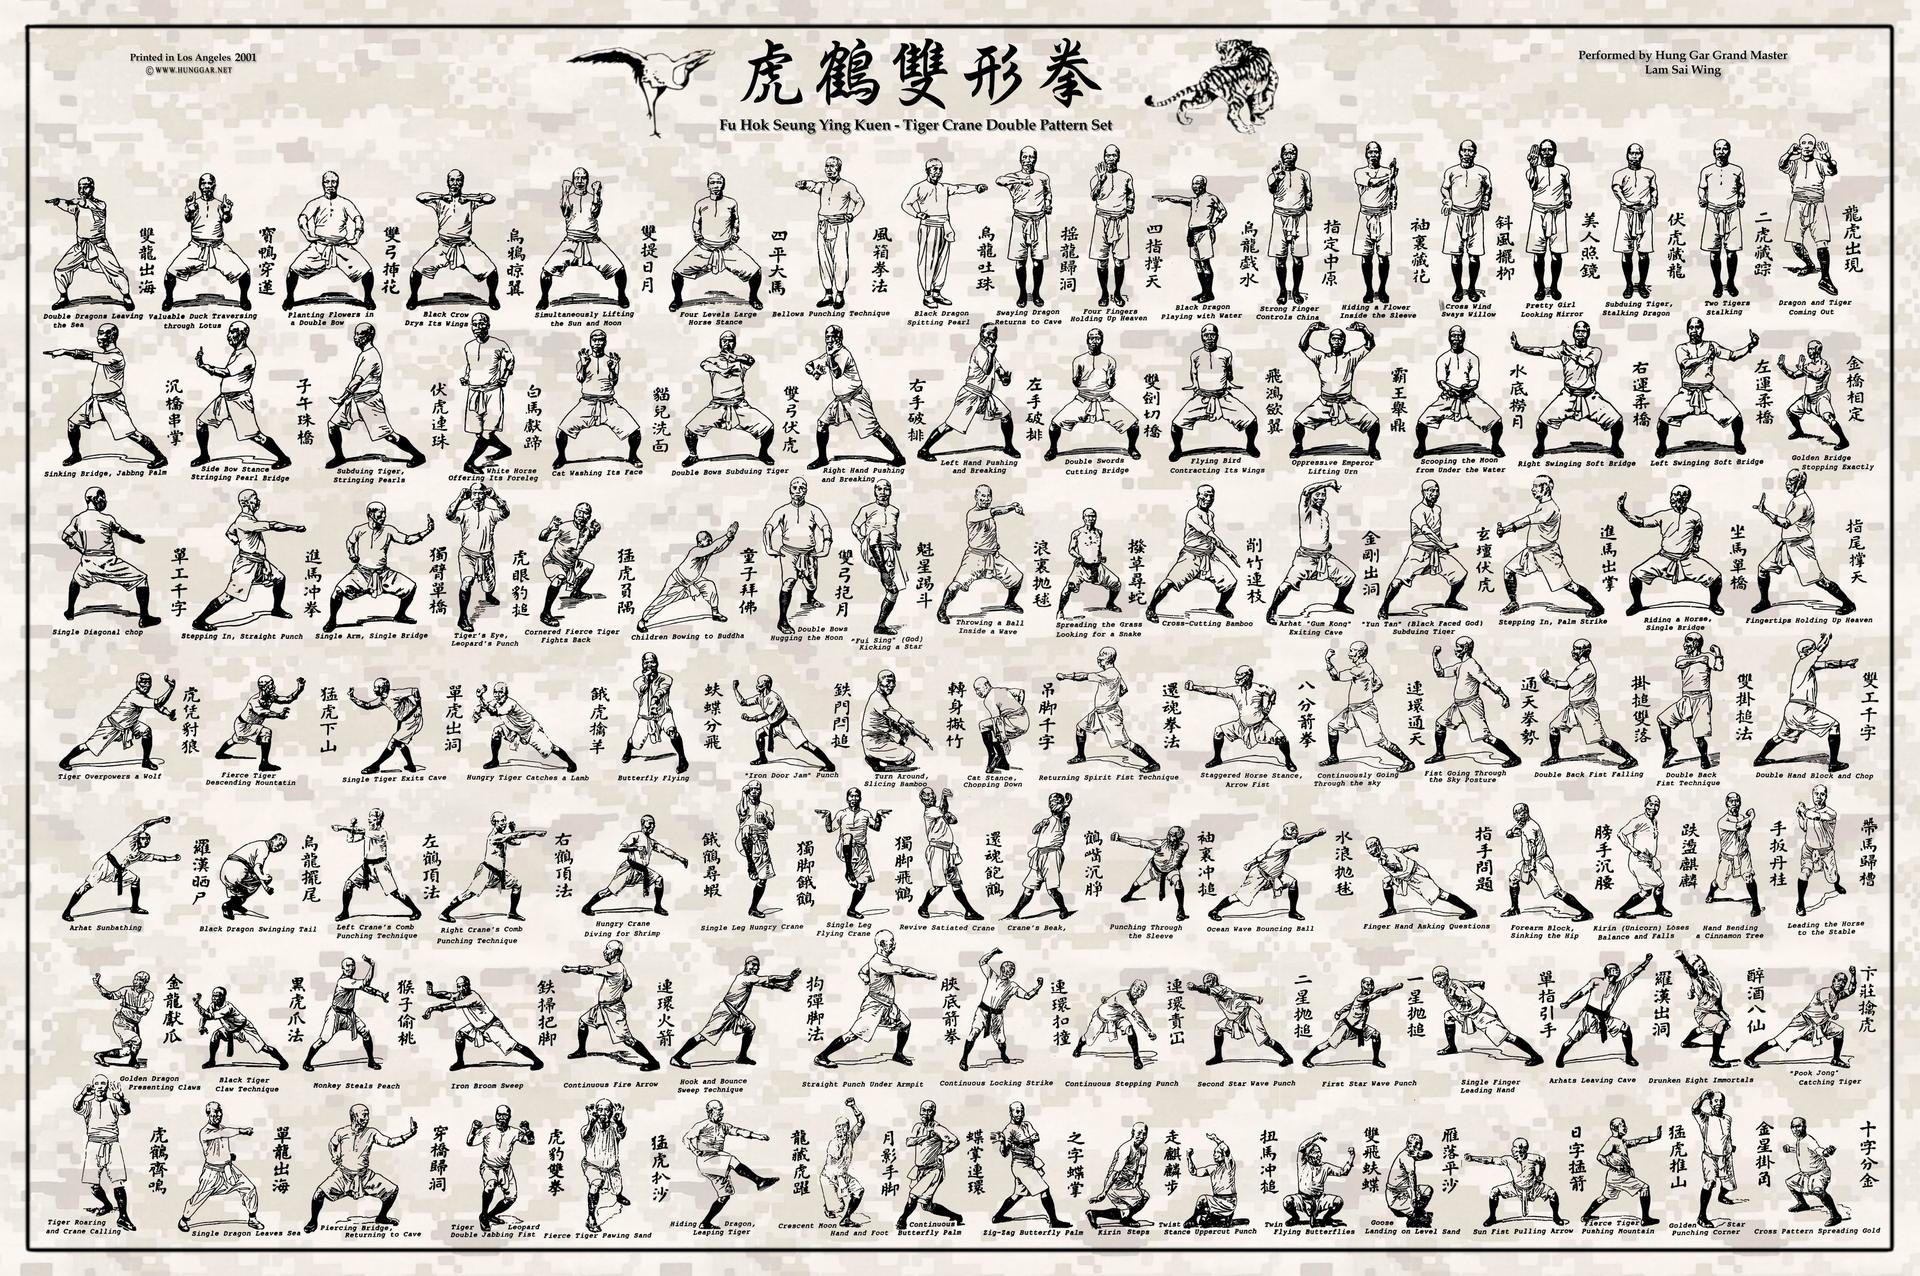 Printed in Los Angeles 2001
© WWW.HUNGGAR.NET
虎鶴雙形拳
Fu Hok Seung Ying Kuen - Tiger Crane Double Pattern Set
Performed by Hung Gar Grand Master
Lam Sai Wing
雙龍出海
Double Dragons Leaving
the Sea
寶鴨穿蓮
Valuable Duck Traversing
through Lotus
雙弓揷花
Planting Flowers in
a Double Bow
烏鴉晾翼
Black Crow
Drys Its Wings
雙提日月
Simultaneously Lifting
the Sun and Moon
四平大馬
Four Levels Large
Horse Stance
風箱拳法
Bellows Punching Technique
烏龍吐珠
Black Dragon
Spitting Pearl
搖龍歸洞
Swaying Dragon
Returns to Cave
四指撑天
Four Fingers
Holding Up Heaven
烏龍戲水
Black Dragon
Playing with Water
指定中原
Strong Finger
Controls China
袖裏藏花
Hiding a Flower
Inside the Sleeve
斜風擺柳
Cross Wind
Sways Willow
美人照鏡
Pretty Girl
Looking Mirror
伏虎藏龍
Subduing Tiger,
Stalking Dragon
二虎藏踪
Two Tigers
Stalking
龍虎出現
Dragon and Tiger
Coming Out
沉橋串掌
Sinking Bridge, Jabbng Palm
子午珠橋
Side Bow Stance
Stringing Pearl Bridge
伏虎連珠
Subduing Tiger,
Stringing Pearls
白馬獻蹄
White Horse
Offering Its Foreleg
貓兒洗面
Cat Washing Its Face
雙弓伏虎
Double Bows Subduing Tiger
右手破排
Right Hand Pushing
and Breaking
左手破排
Left Hand Pushing
and Breaking
雙劍切橋
Double Swords
Cutting Bridge
飛鴻歛翼
Flying Bird
Contracting Its Wings
霸王舉鼎
Oppressive Emperor
Lifting Urn
水底撈月
Scooping the Moon
from Under the Water
右運柔橋
Right Swinging Soft Bridge
左運柔橋
Left Swinging Soft Bridge
金橋相定
Golden Bridge
Stopping Exactly
單工千字
Single Diagonal chop
進馬冲拳
Stepping In, Straight Punch
獨臂單橋
Single Arm, Single Bridge
虎眼豹搥
Tiger's Eye,
Leopard's Punch
猛虎負隅
Cornered Fierce Tiger
Fights Back
童子拜佛
Children Bowing to Buddha
雙弓抱月
Double Bows
Hugging the Moon
魁星踢斗
"Fui Sing" (God)
Kicking a Star
浪裏抛毬
Throwing a Ball
Inside a Wave
撥草尋蛇
Spreading the Grass
Looking for a Snake
削竹連枝
Cross-Cutting Bamboo
金剛出洞
Arhat "Gum Kong"
Exiting Cave
玄壇伏虎
"Yun Tan" (Black Faced God)
Subduing Tiger
進馬出掌
Stepping In, Palm Strike
坐馬單橋
Riding a Horse,
Single Bridge
指尾撑天
Fingertips Holding Up Heaven
虎凭豺狼
Tiger Overpowers a Wolf
猛虎下山
Fierce Tiger
Descending Mountatin
單虎出洞
Single Tiger Exits Cave
餓虎擒羊
Hungry Tiger Catches a Lamb
蚨蝶分飛
Butterfly Flying
鉄門閂搥
"Iron Door Jam" Punch
轉身撇竹
Turn Around,
Slicing Bamboo
吊脚千字
Cat Stance,
Chopping Down
還魂拳法
Returning Spirit Fist Technique
八分箭拳
Staggered Horse Stance,
Arrow Fist
連環通天
Continuously Going
Through the sky
通天拳勢
Fist Going Through
the Sky Posture
掛搥雙落
Double Back Fist Falling
雙掛搥法
Double Back
Fist Technique
雙工千字
Double Hand Block and Chop
羅漢晒尸
Arhat Sunbathing
烏龍擺尾
Black Dragon Swinging Tail
左鶴頂法
Left Crane's Comb
Punching Technique
右鶴頂法
Right Crane's Comb
Punching Technique
餓鶴尋蝦
Hungry Crane
Diving for Shrimp
獨脚餓鶴
Single Leg Hungry Crane
獨脚飛鶴
Single Leg
Flying Crane
還魂飽鶴
Revive Satiated Crane
鶴嘴沉睜
Crane's Beak,
袖裏冲搥
Punching Through
the Sleeve
水浪抛毬
Ocean Wave Bouncing Ball
指手問題
Finger Hand Asking Questions
膀手沉腰
Forearm Block,
Sinking the Hip
跌盪麒麟
Kirin (Unicorn) Loses
Balance and Falls
手扳丹桂
Hand Bending
a Cinnamon Tree
帶馬歸槽
Leading the Horse
to the Stable
金龍獻爪
Golden Dragon
Presenting Claws
黑虎爪法
Black Tiger
Claw Technique
猴子偷桃
Monkey Steals Peach
鉄掃把脚
Iron Broom Sweep
連環火箭
Continuous Fire Arrow
拘彈脚法
Hook and Bounce
Sweep Technique
脥底箭拳
Straight Punch Under Armpit
連環扣撞
Continuous Locking Strike
連環
Continuous Stepping Punch
二星抛搥
Second Star Wave Punch
一星抛搥
First Star Wave Punch
單指引手
Single Finger
Leading Hand
羅漢出洞
Arhats Leaving Cave
醉酒八仙
Drunken Eight Immortals
卞莊擒虎
"Pook Jong"
Catching Tiger
虎鶴齊鳴
Tiger Roaring
and Crane Calling
單龍出海
Single Dragon Leaves Sea
穿橋歸洞
Piercing Bridge,
Returning to Cave
虎豹雙拳
Tiger Leopard
Double Jabbing Fist
猛虎扒沙
Fierce Tiger Pawing Sand
龍藏虎躍
Hiding Dragon,
Leaping Tiger
月影手脚
Crescent Moon
Hand and Foot
蝶掌連環
Continuous
Butterfly Palm
之字蝶掌
Zig-Zag Butterfly Palm
走麒麟步
Kirin Steps
扭馬冲搥
Twist
Stance Uppercut Punch
雙飛蚨蝶
Twin
Flying Butterflies
雁落平沙
Goose
Landing on Level Sand
日字猛箭
Sun Fist Pulling Arrow
猛虎推山
Fierce Tiger
Pushing Mountain
金星掛角
Golden Star
Punching Corner
十字分金
Cross Pattern Spreading Gold